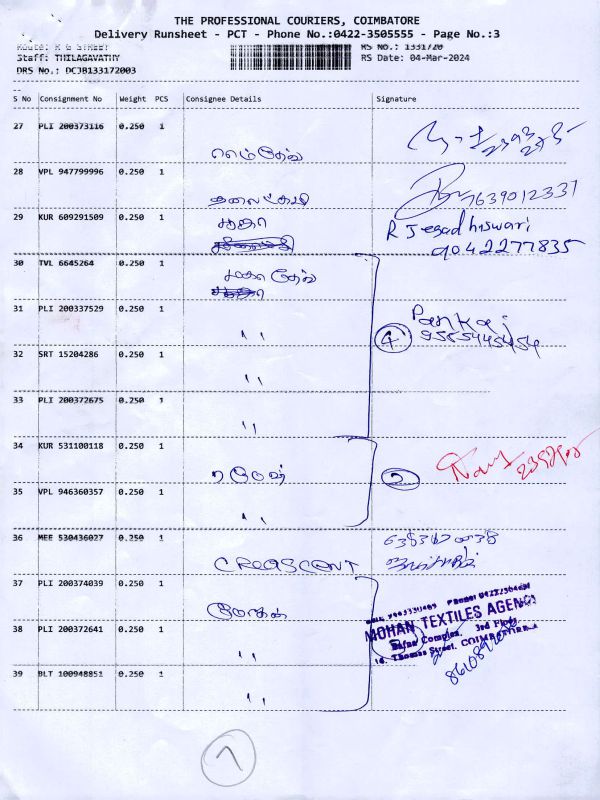 THE PROFESSIONAL COURIERS, COIMBATORE
Delivery Runsheet - PCT - Phone No.:0422-3505555 - Page No.:3
Route: R G STREET
RS No.: 1331720
Staff: THILAGAVATHY
RS Date: 04-Mar-2024
DRS No.: DCJB133172003
S No Consignment No Weight PCS Consignee Details Signature
27 PLI 200373116 0.250 1
28 VPL 947799996 0.250 1
7639012331
29 KUR 609291509 0.250 1
R Jeegadhiswari
9042277835
30 TVL 6645264 0.250 1
31 PLI 200337529 0.250 1 ''
Pankaj
4
32 SRT 15204286 0.250 1 ''
33 PLI 200372675 0.250 1 ''
34 KUR 531100118 0.250 1
2
35 VPL 946360357 0.250 1 ''
36 MEE 530436027 0.250 1 CREASCENT
37 PLI 200374039 0.250 1
MOHAN TEXTILES AGENCY
38 PLI 200372641 0.250 1 ''
3rd Floor,
Thomas Street, COIMBATORE
39 BLT 100948851 0.250 1 ''
7